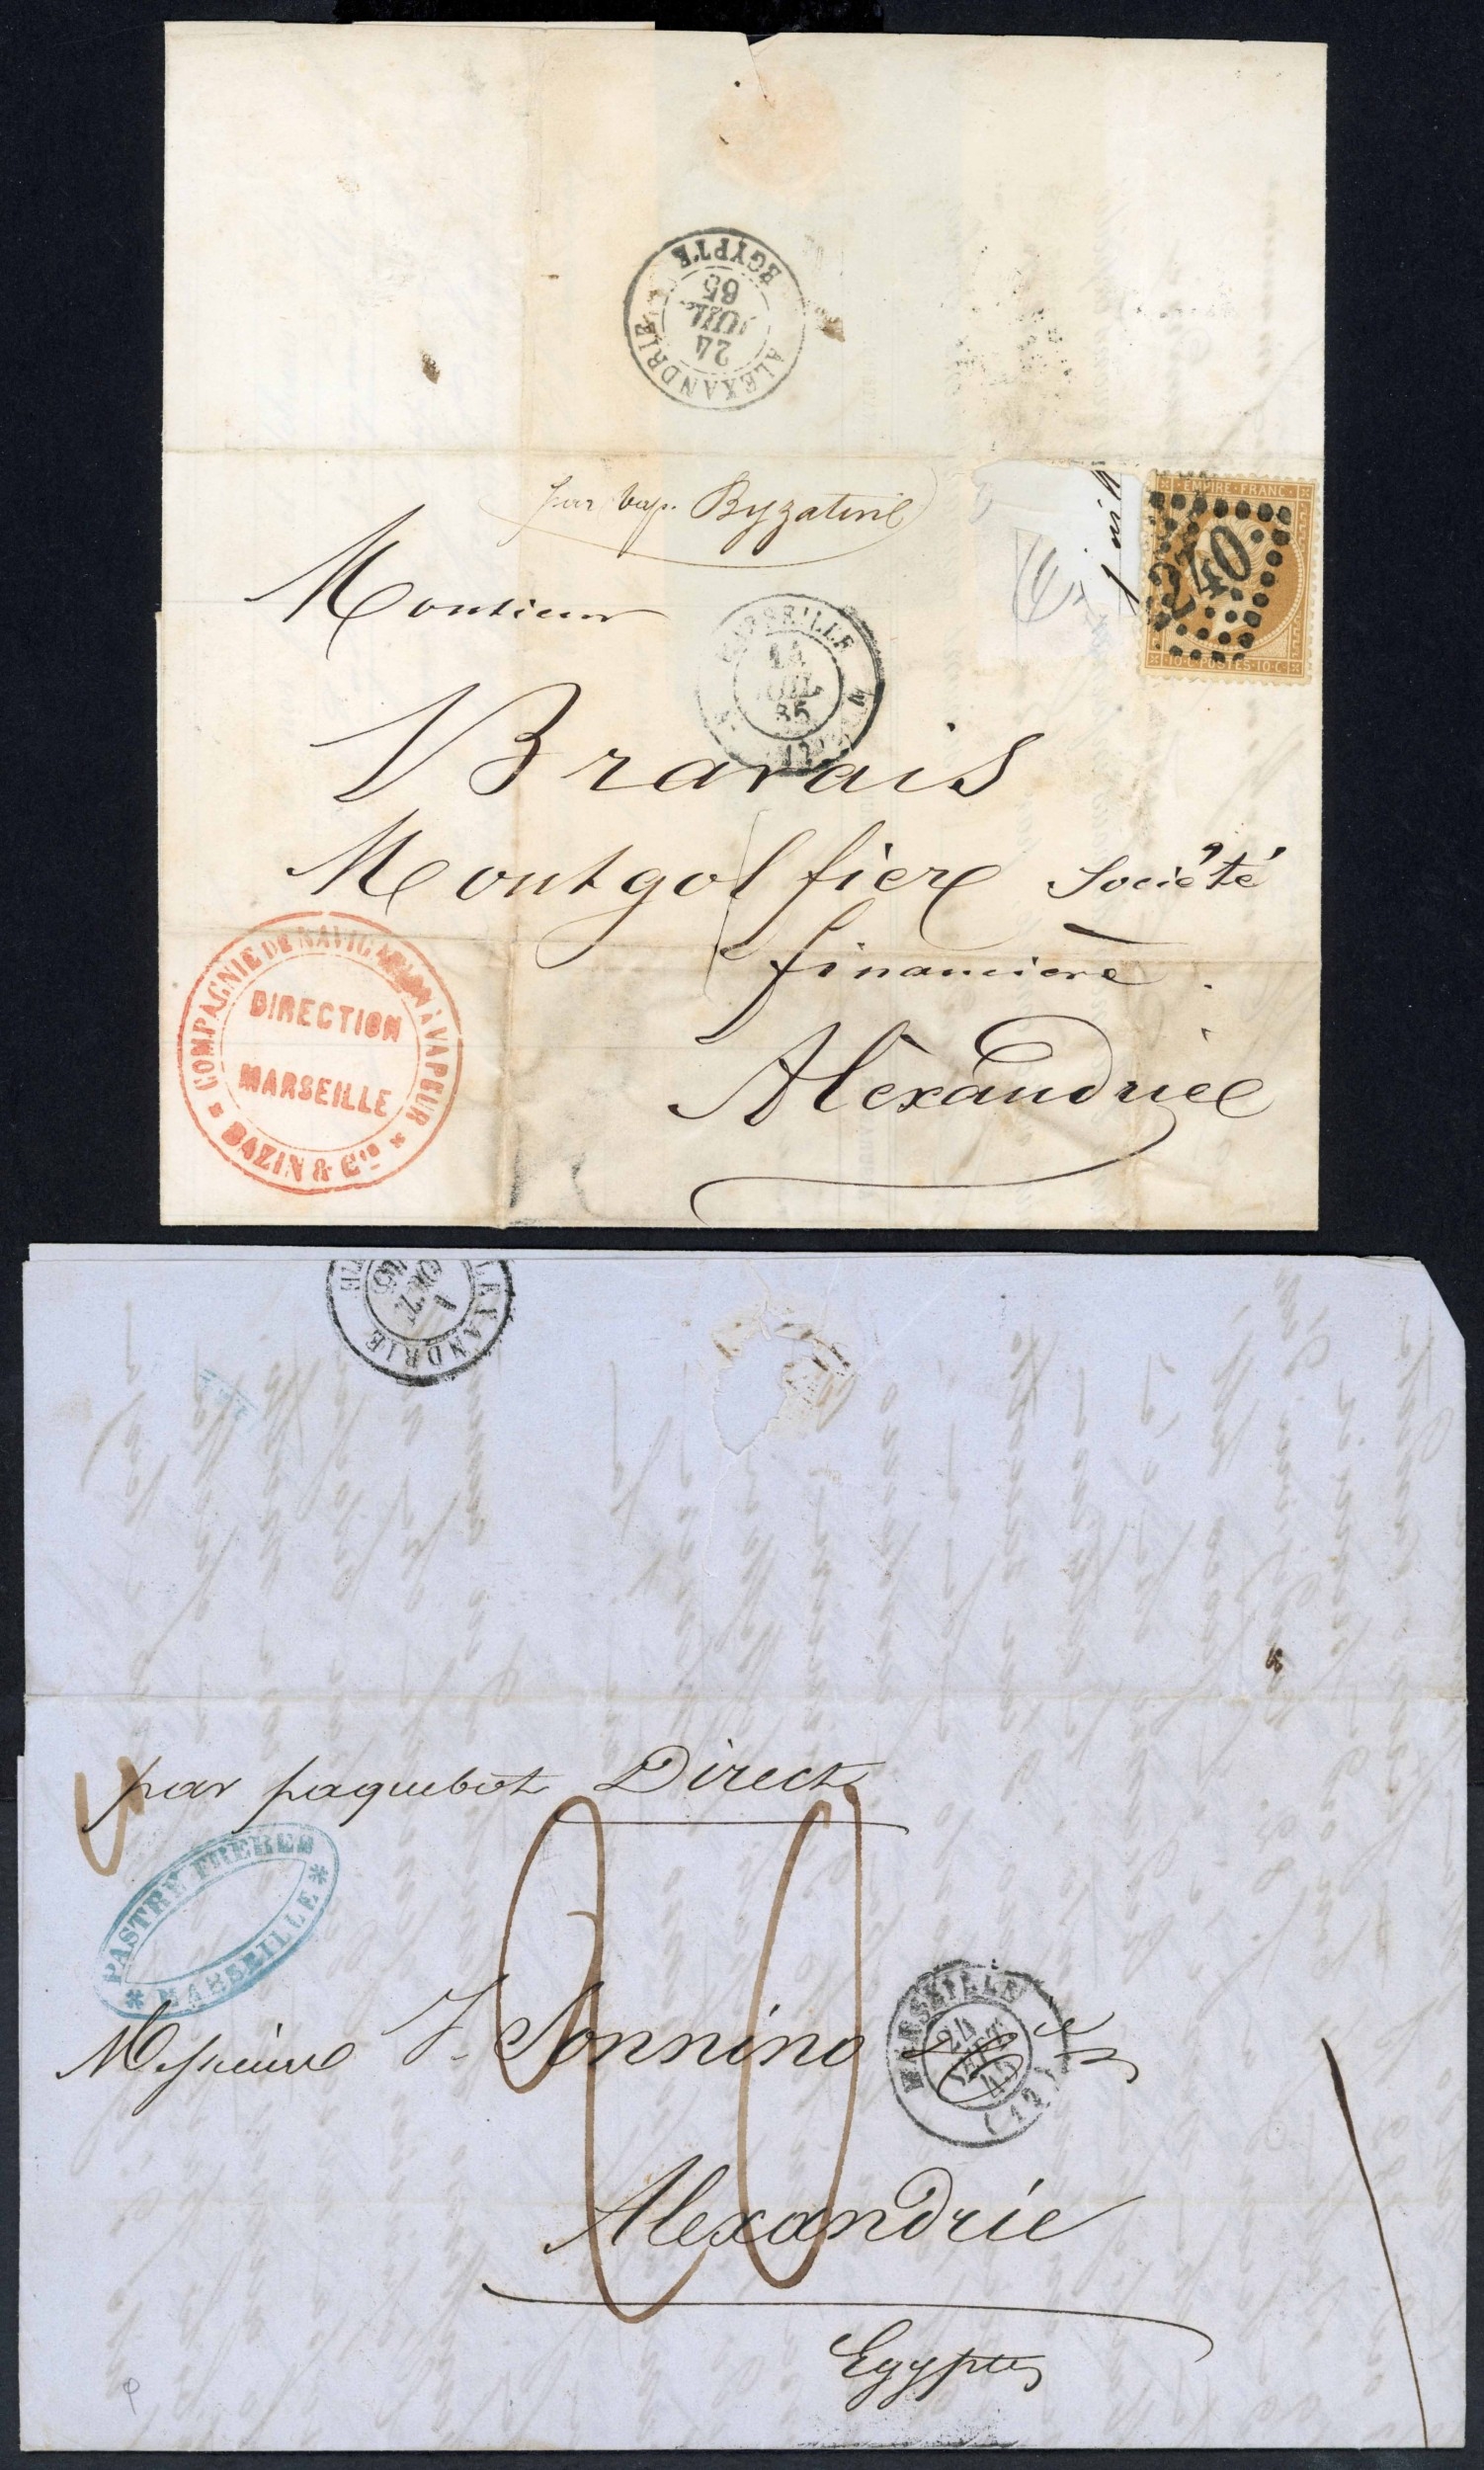 ALEXANDRIE EGYPTE
24
JUIL.
65
par vap. Byzatine
EMPIRE FRANC
2240
10 C. POSTES 10 C.
Monsieur
MARSEILLE
14
JUIL
65
Bravais
Montgolfier Société
financiere
Alexandrie
COMPAGNIE DE NAVIGATION À VAPEUR
DIRECTION
MARSEILLE
BAZIN & Cie
ALEXANDRIE
1
OCT
par paquebot Direct
PASTRE FRERES
MARSEILLE
Messieurs J. Sonnino & Cie
MARSEILLE
24
SEPT
(12)
Alexandrie
Egypte